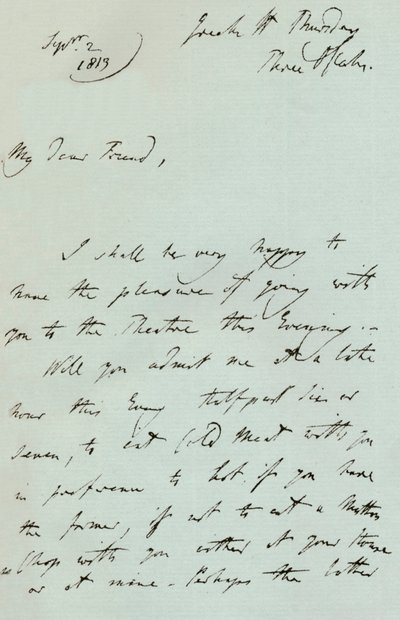 Sept.r 2
1813
Greek St Thursday
Three O'Clock.
My Dear Friend,
I shall be very happy to
have the pleasure of going with
you to the Theatre this Evening. -
Will you admit me at a late
hour this Eveng half past Six or
Seven, to eat Cold Meat with you
in preference to hot if you have
the former, if not to eat a Mutton
Chop with you either at your House
or at mine - Perhaps the latter